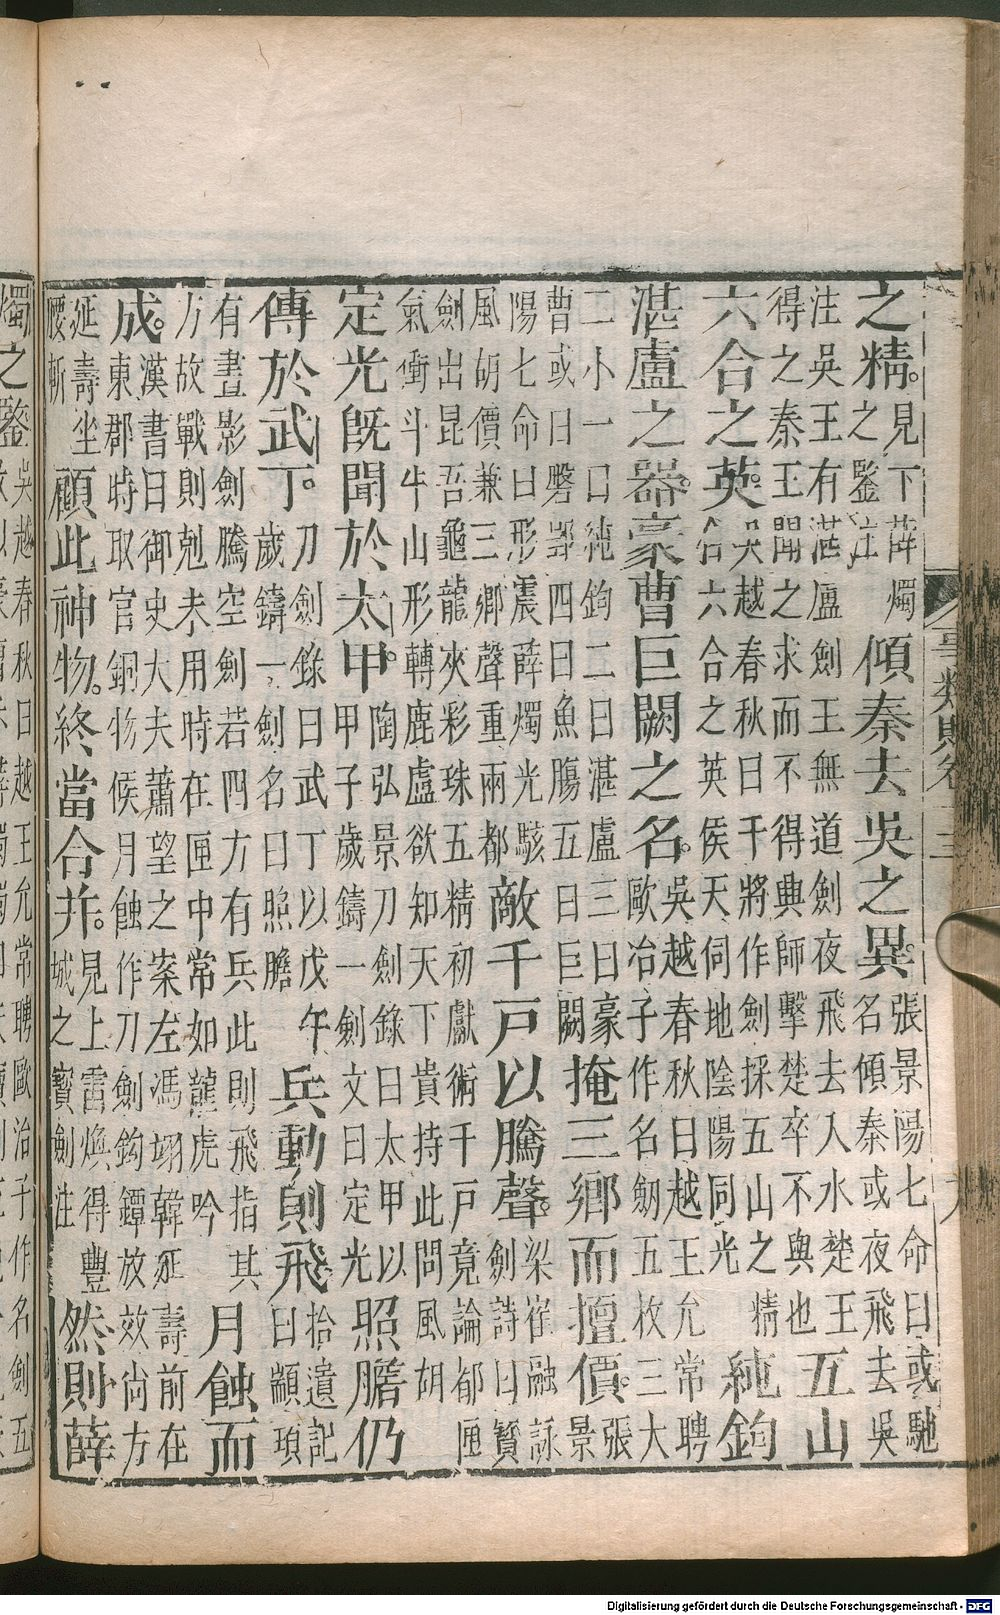 之精。見下薛燭
之鑒注
傾秦去吳之異。張景陽七命曰或馳
名傾秦或夜飛去吳
注吳王有湛盧劍王無道劍夜飛去入水楚王
得之秦王聞之求而不得典師擊楚卒不與也
五山
六合之英。吳越春秋曰干將作劍採五山之精
合六合之英侯天伺地陰陽同光
純鈎
湛盧之器豪曹巨闕之名。吳越春秋曰越王允常聘
歐冶子作名劒五枚三大
二小一曰純鈎二曰湛盧三曰豪
曹或曰磐郢四曰魚膓五曰巨闕
掩三鄉而擅價。張
景
陽七命曰形震薛燭光駭
風胡價兼三鄉聲重兩都
敵千戸以騰聲。梁崔融詠
劍詩曰寶
劍出昆吾龜龍夾彩珠五精初獻術千戸竟論都匣
氣衝斗牛山形轉鹿盧欲知天下貴持此問風胡
定光旣聞於太甲。陶弘景刀劍錄曰太甲以
甲子歲鑄一劍文曰定光
照膽仍
傳於武丁。刀劍錄曰武丁以戊午
歲鑄一劍名曰照膽
兵動則飛拾遺記
曰顓頊
有畫影劍騰空劍若四方有兵此則飛指其
方故戰則剋未用時在匣中常如龍虎吟
月蝕而
成。漢書曰御史大夫蕭望之案左馮翊韓延壽前在
東郡時取官銅物候月蝕作刀劍鈎鐔放效尚方
延壽坐
腰斬
顧此神物。終當合幷。見上雷煥得豐
城之寶劍注
然則薛
燭之鑒吳越春秋曰越王允常聘歐冶子作名劍五
Digitalisierung gefördert durch die Deutsche Forschungsgemeinschaft - DFG